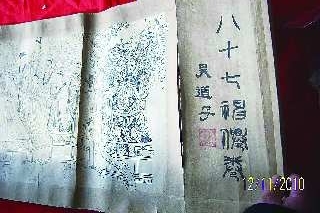 八十七神仙卷
吴道子
2/11/2010